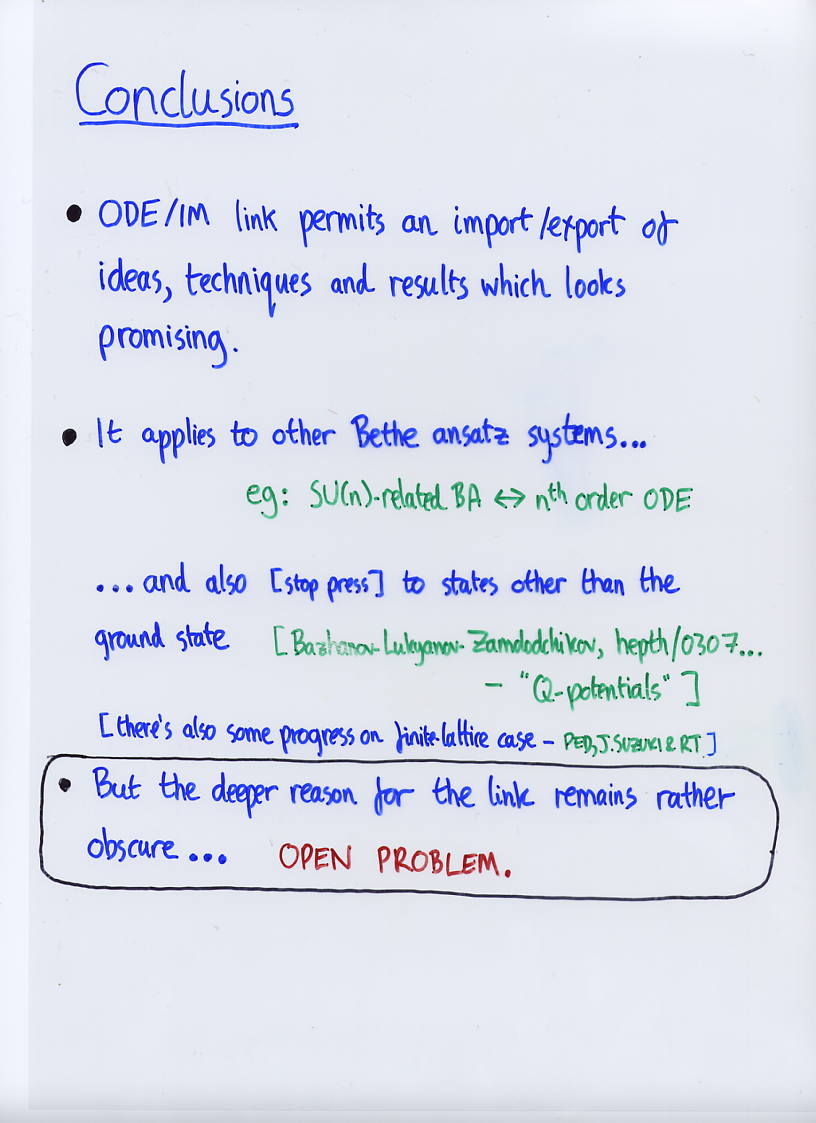 Conclusions
• ODE/IM link permits an import/export of
ideas, techniques and results which looks
promising.
• It applies to other Bethe ansatz systems...
eg: SU(n)-related BA ↔ nth order ODE
...and also [stop press] to states other than the
ground state [Bazhanov-Lukyanov-Zamolodchikov, hepth/0307...
- "Q-potentials"]
[there's also some progress on finite-lattice case - PED, J.SUZUKI & RT.]
• But the deeper reason for the link remains rather
obscure... OPEN PROBLEM.